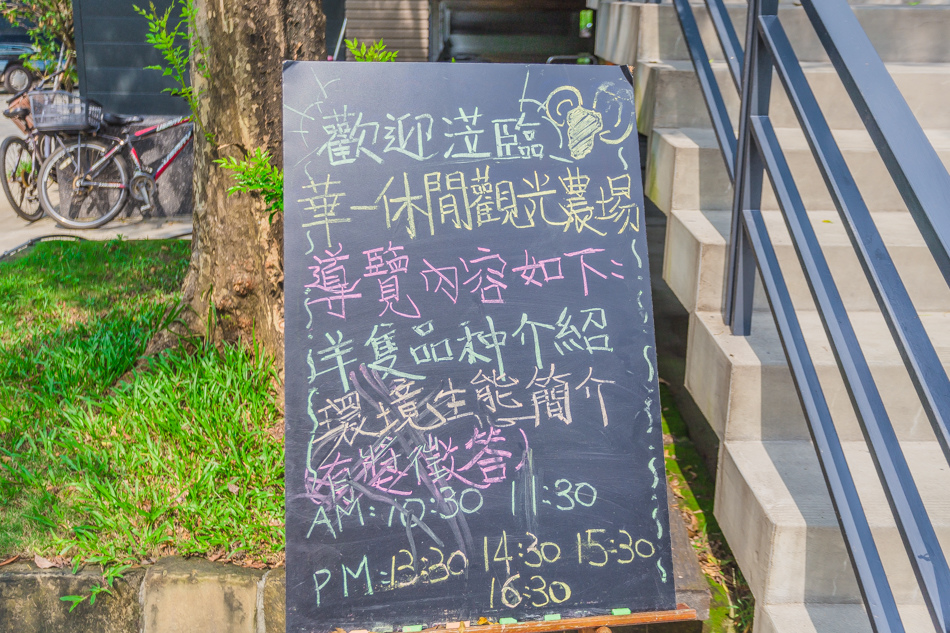 歡迎蒞臨
華一休閒觀光農場
導覽內容如下:
羊隻品种介紹
環境生態簡介
有獎徵答
AM: 10:30 11:30
PM: 13:30 14:30 15:30
16:30